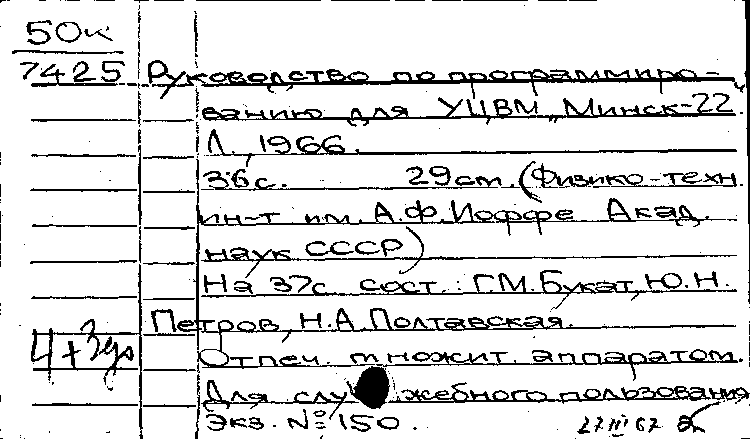 50к
7425 Руководство по программиро-
ванию для УЦВМ „Минск-22".
Л., 1966.
36с. 29см. (Физико-техн.
ин-т им. А.Ф.Иоффе Акад.
наук СССР)
На 37с. сост.: Г.М.Букат, Ю.Н.
Петров, Н.А.Полтавская.
Отпеч. множит. аппаратом.
Для служебного пользования
Экз. №150.
27 III 67